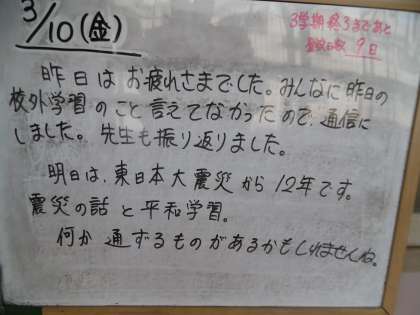 3/10(金)
3学期終了まであと
登校日数 9日
昨日はお疲れさまでした。みんなに昨日の
校外学習のこと言えてなかったので、通信に
しました。先生も振り返りました。
明日は、東日本大震災から12年です。
震災の話と平和学習。
何か通ずるものがあるかもしれませんね。